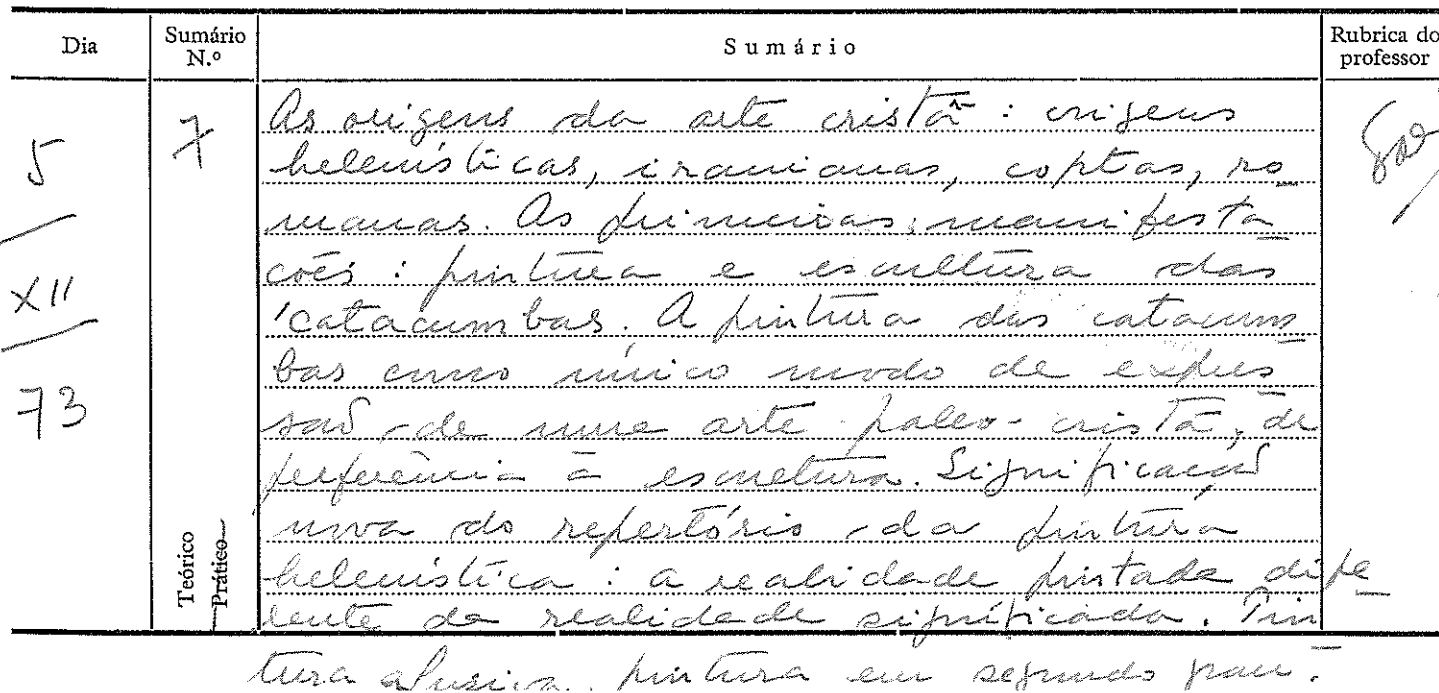 Dia
Sumário N.º
Sumário
Rubrica do professor
5
XII
73
7
Teórico
Prático
As origens da arte cristã : origens
helenísticas, iranianas, coptas, ro
manas. As primeiras manifesta
ções : pintura e escultura das
catacumbas. A pintura das catacum
bas como único modo de expres
são de uma arte paleo-cristã, de
preferência à escultura. Significação
nova do repertório da pintura
helenística : a realidade pintada dife
rente da realidade significada. Pin
tura alusiva, pintura em segundo grau.